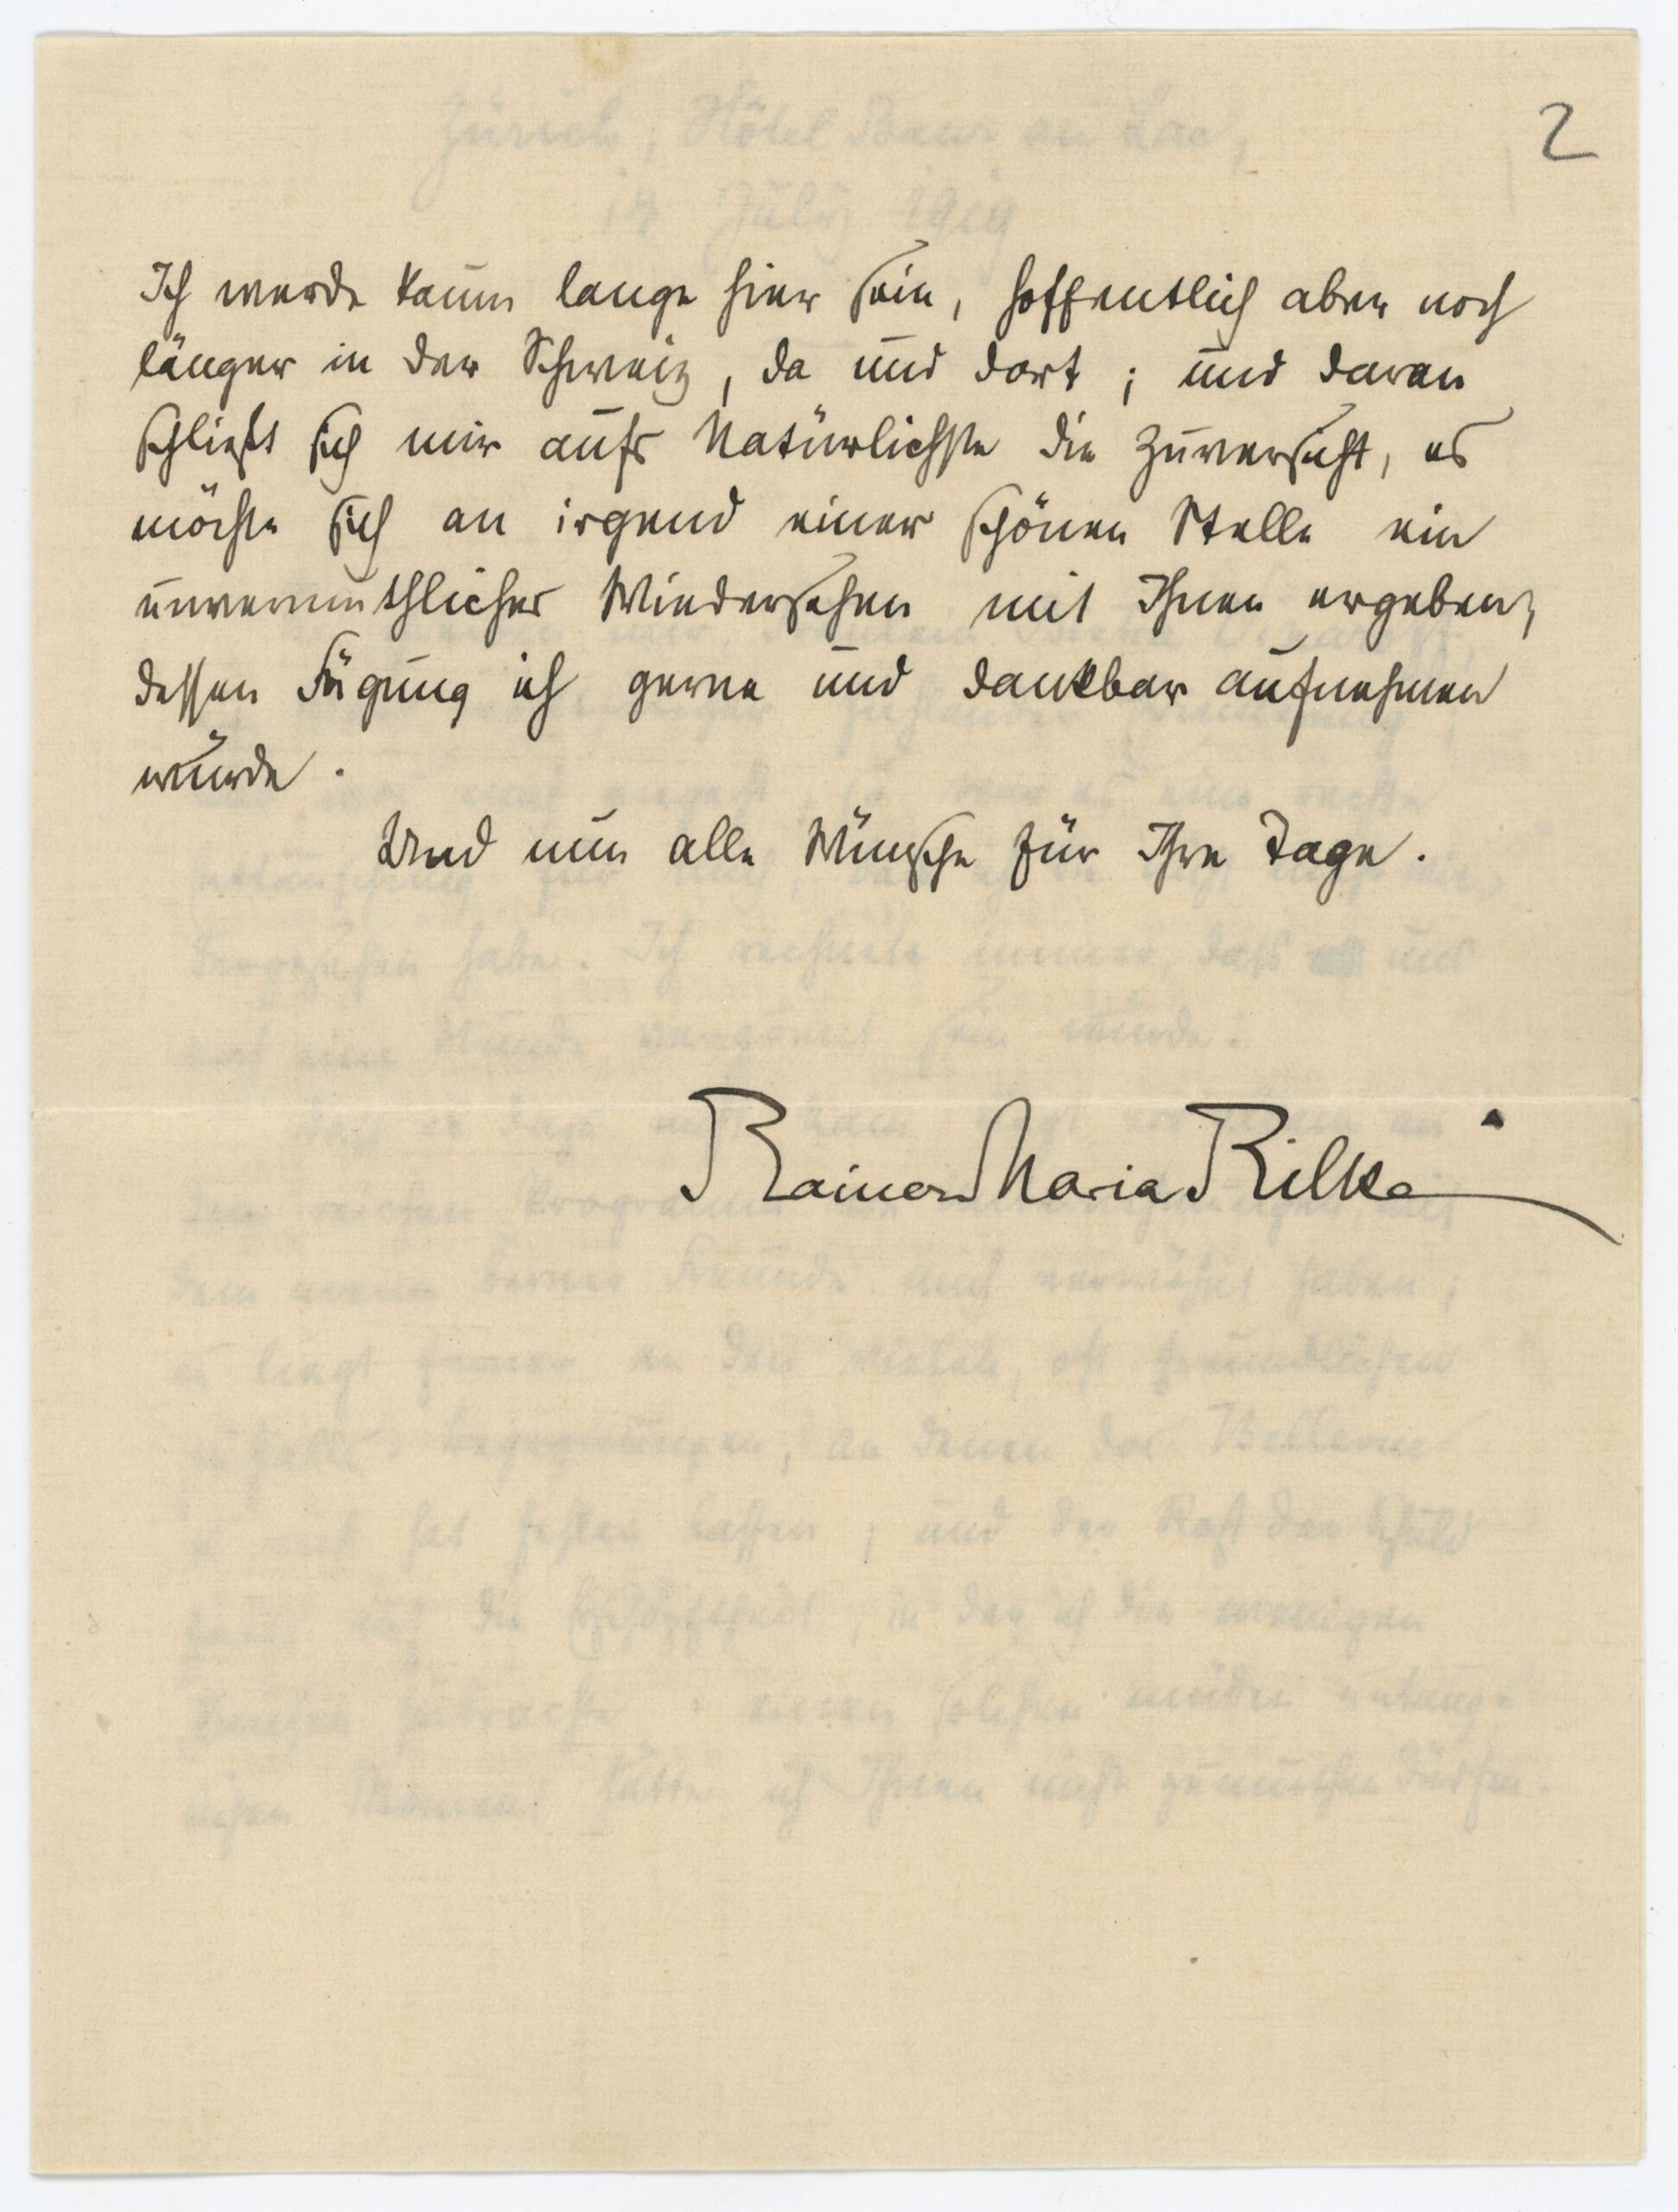 2
Ich werde kaum lange hier sein, hoffentlich aber noch
länger in der Schweiz, da und dort; und daran
schließt sich mir aufs Natürlichste die Zuversicht, es
möchte sich an irgend einer schönen Stelle ein
unvermuthliches Wiedersehen mit Ihnen ergeben,
dessen Fügung ich gerne und dankbar aufnehmen
würde.
Und nun alle Wünsche für Ihre Tage.
Rainer Maria Rilke